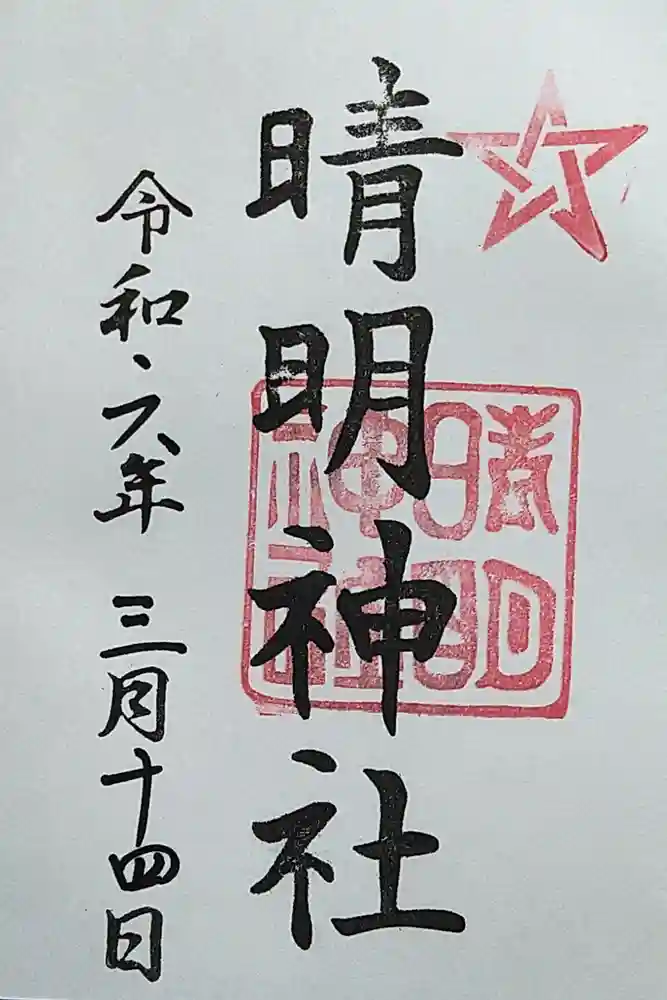 晴明神社
晴明神社
令和六年 三月十四日